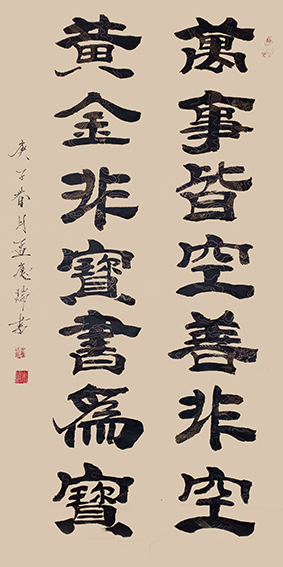 萬事皆空善非空
黃金非寶書為寶
庚子春月孟憲瑞書